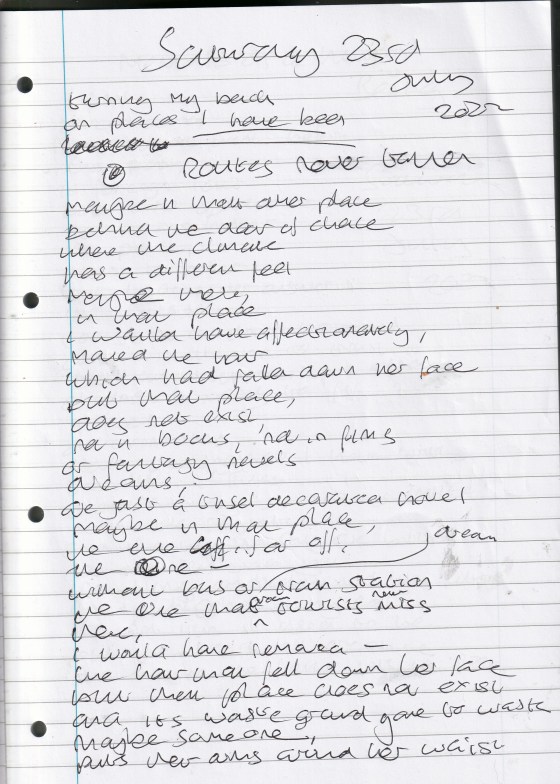 Saturday 23rd
July
2022
turning my back
on places I have been
Routes never taken
maybe in that other place
behind the door of chance
where the climate
has a different feel
maybe there,
in that place
i would have affectionately,
moved the hair
which had fallen down her face
but that place,
does not exist,
not in books, not in films
or fantasy novels
dreams,
are just a tinsel decorated hovel
maybe in that place,
the one far off.
the one –
without bus or train station
the one that even tourists never miss
dream
there,
i would have removed —
the hair that fell down her face
but then place does not exist
and its waste ground gone to waste
maybe someone,
puts her arms around her waist